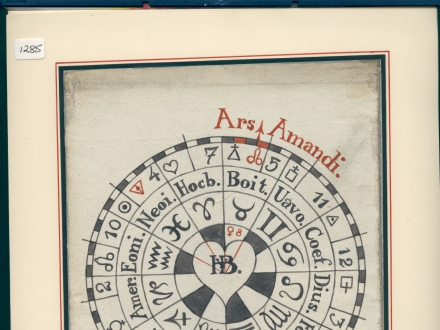 1285
Ars Amandi.
2 10 4 7 5 11 12 3
Amer. Eoni. Neoi. Hocb. Boit. Uavo. Coef. Dius.
8
HB.